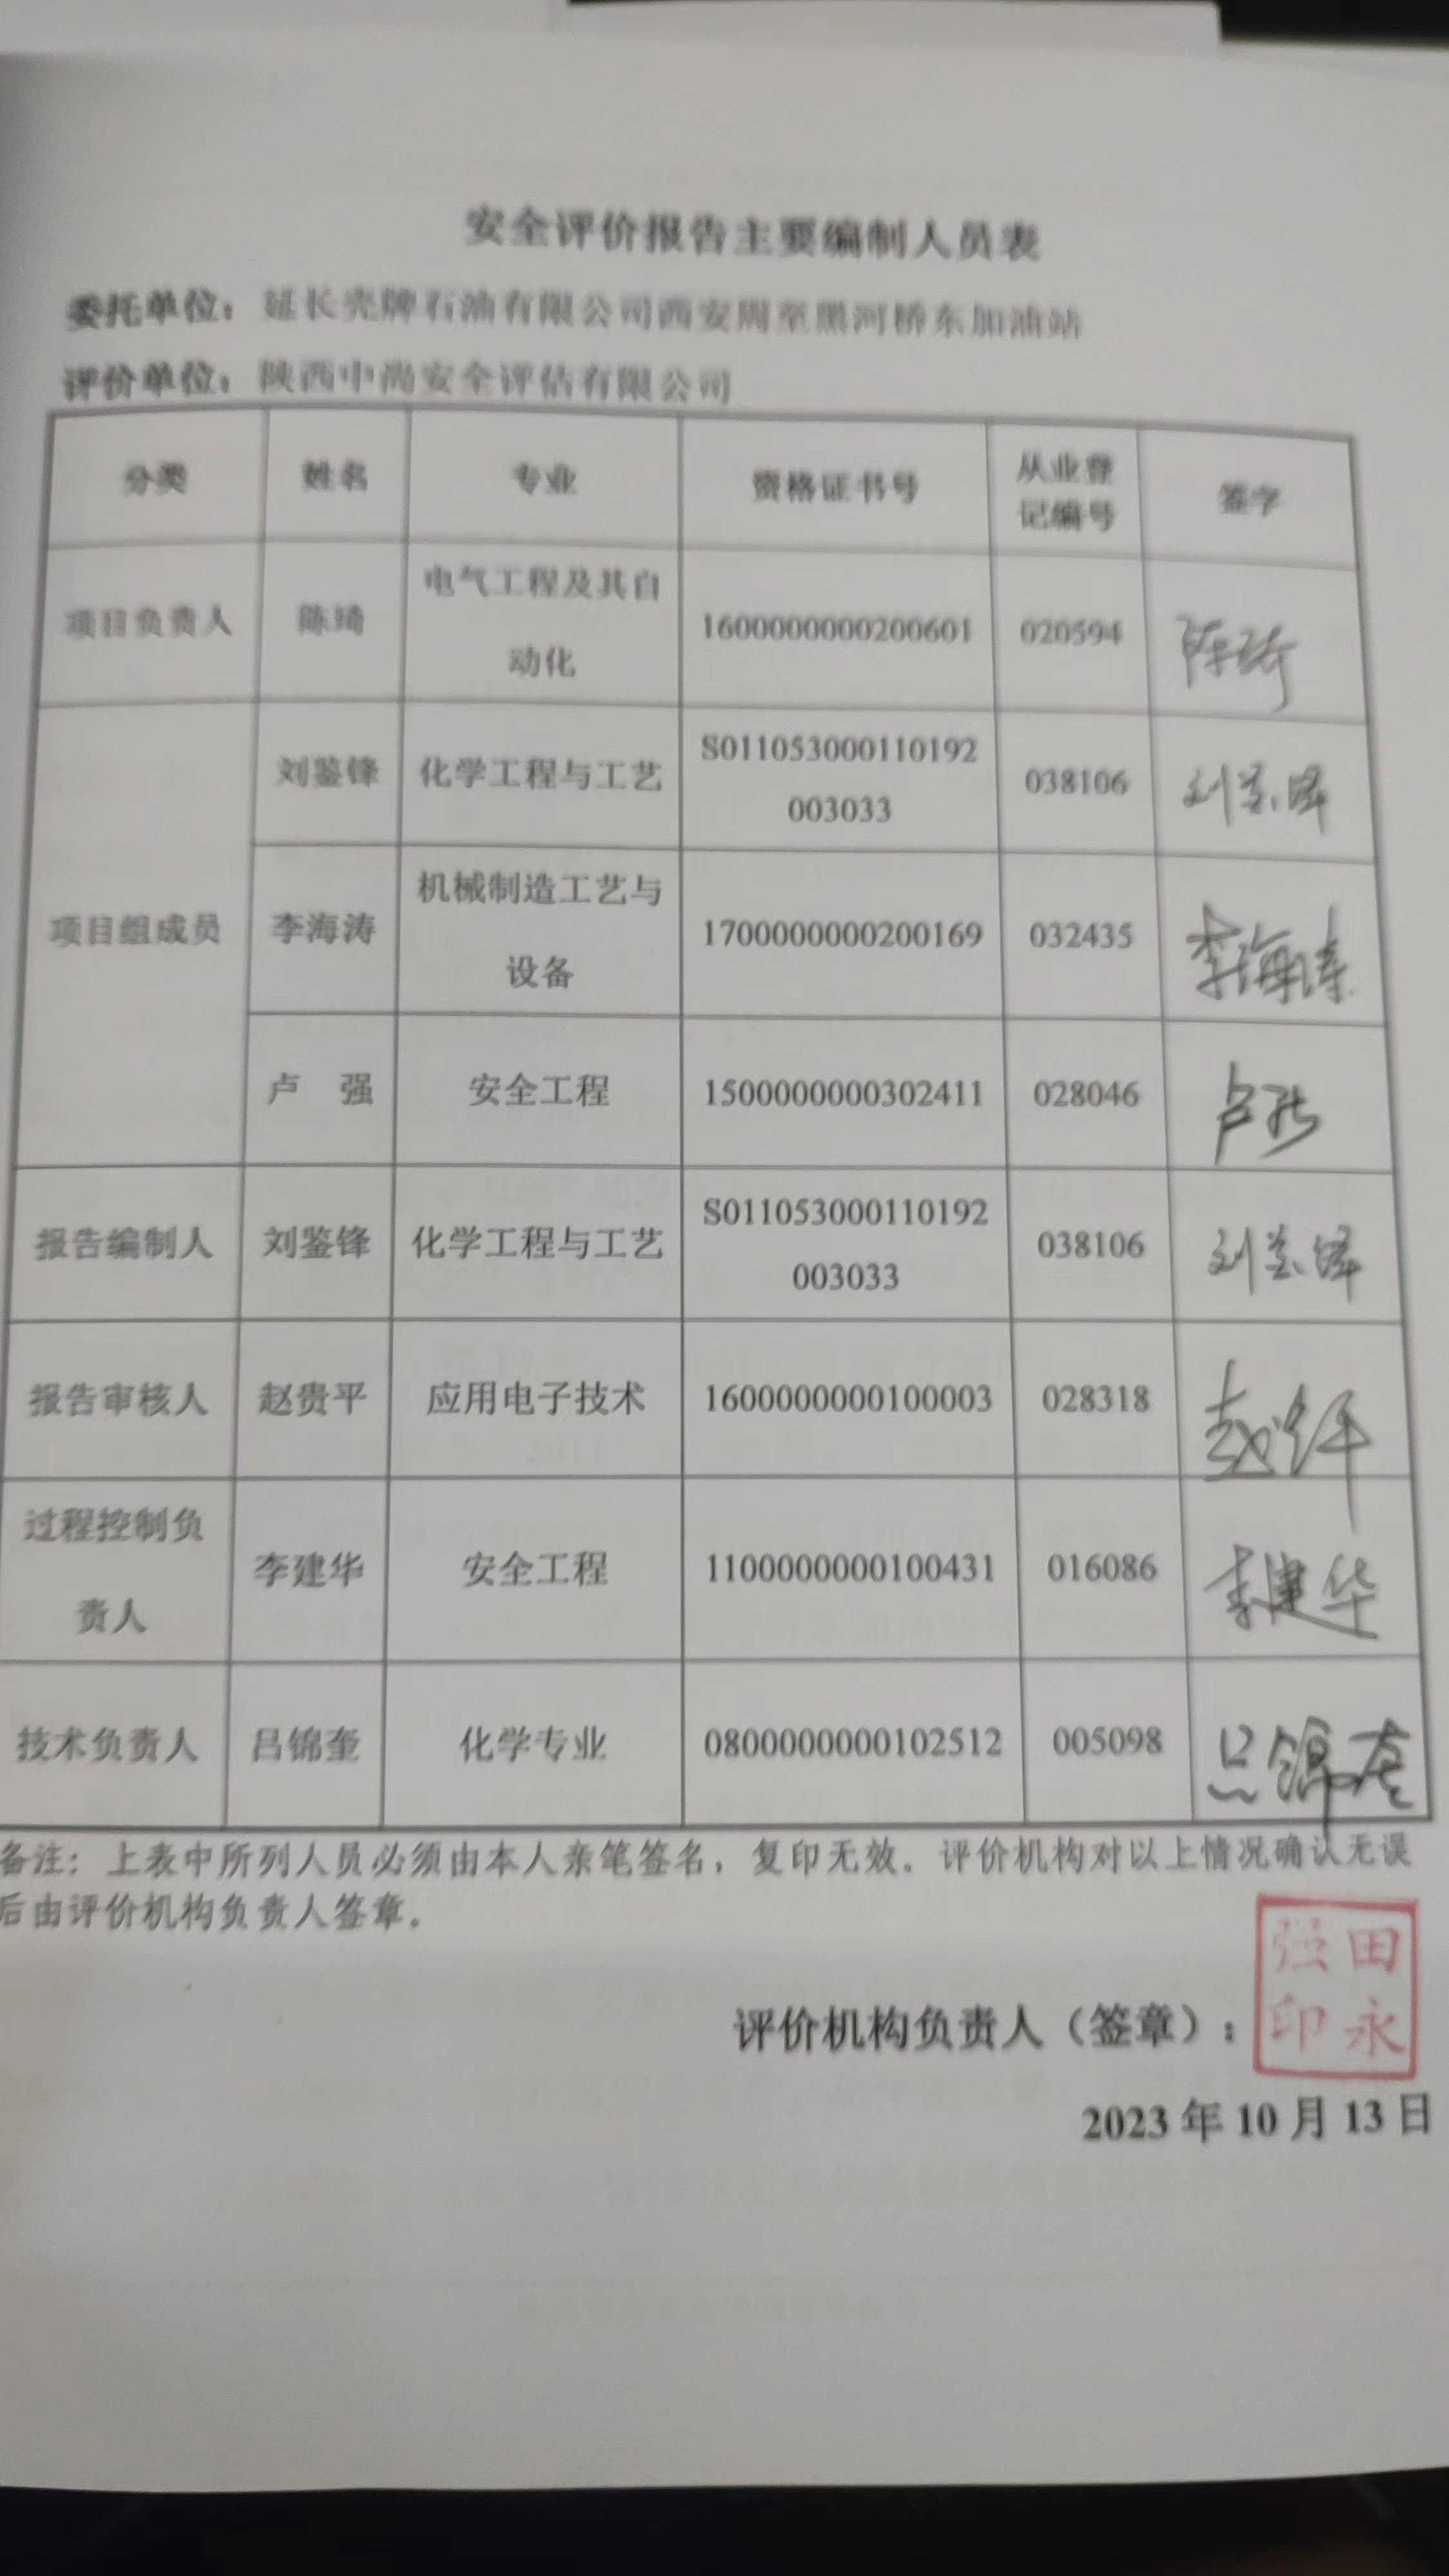 安全评价报告主要编制人员表
委托单位：延长壳牌石油有限公司西安周至黑河桥东加油站
评价单位：陕西中尚安全评估有限公司
分类 姓名 专业 资格证书号 从业登记编号 签字
项目负责人 陈琦 电气工程及其自动化 1600000000200601 020594 陈琦
项目组成员 刘鉴锋 化学工程与工艺 S011053000110192003033 038106 刘鉴锋
李海涛 机械制造工艺与设备 1700000000200169 032435 李海涛
卢 强 安全工程 1500000000302411 028046 卢强
报告编制人 刘鉴锋 化学工程与工艺 S011053000110192003033 038106 刘鉴锋
报告审核人 赵贵平 应用电子技术 1600000000100003 028318
过程控制负责人 李建华 安全工程 1100000000100431 016086 李建华
技术负责人 吕锦奎 化学专业 0800000000102512 005098 吕锦奎
备注：上表中所列人员必须由本人亲笔签名，复印无效。评价机构对以上情况确认无误
后由评价机构负责人签章。
评价机构负责人（签章）：
田永强印
2023 年 10 月 13 日